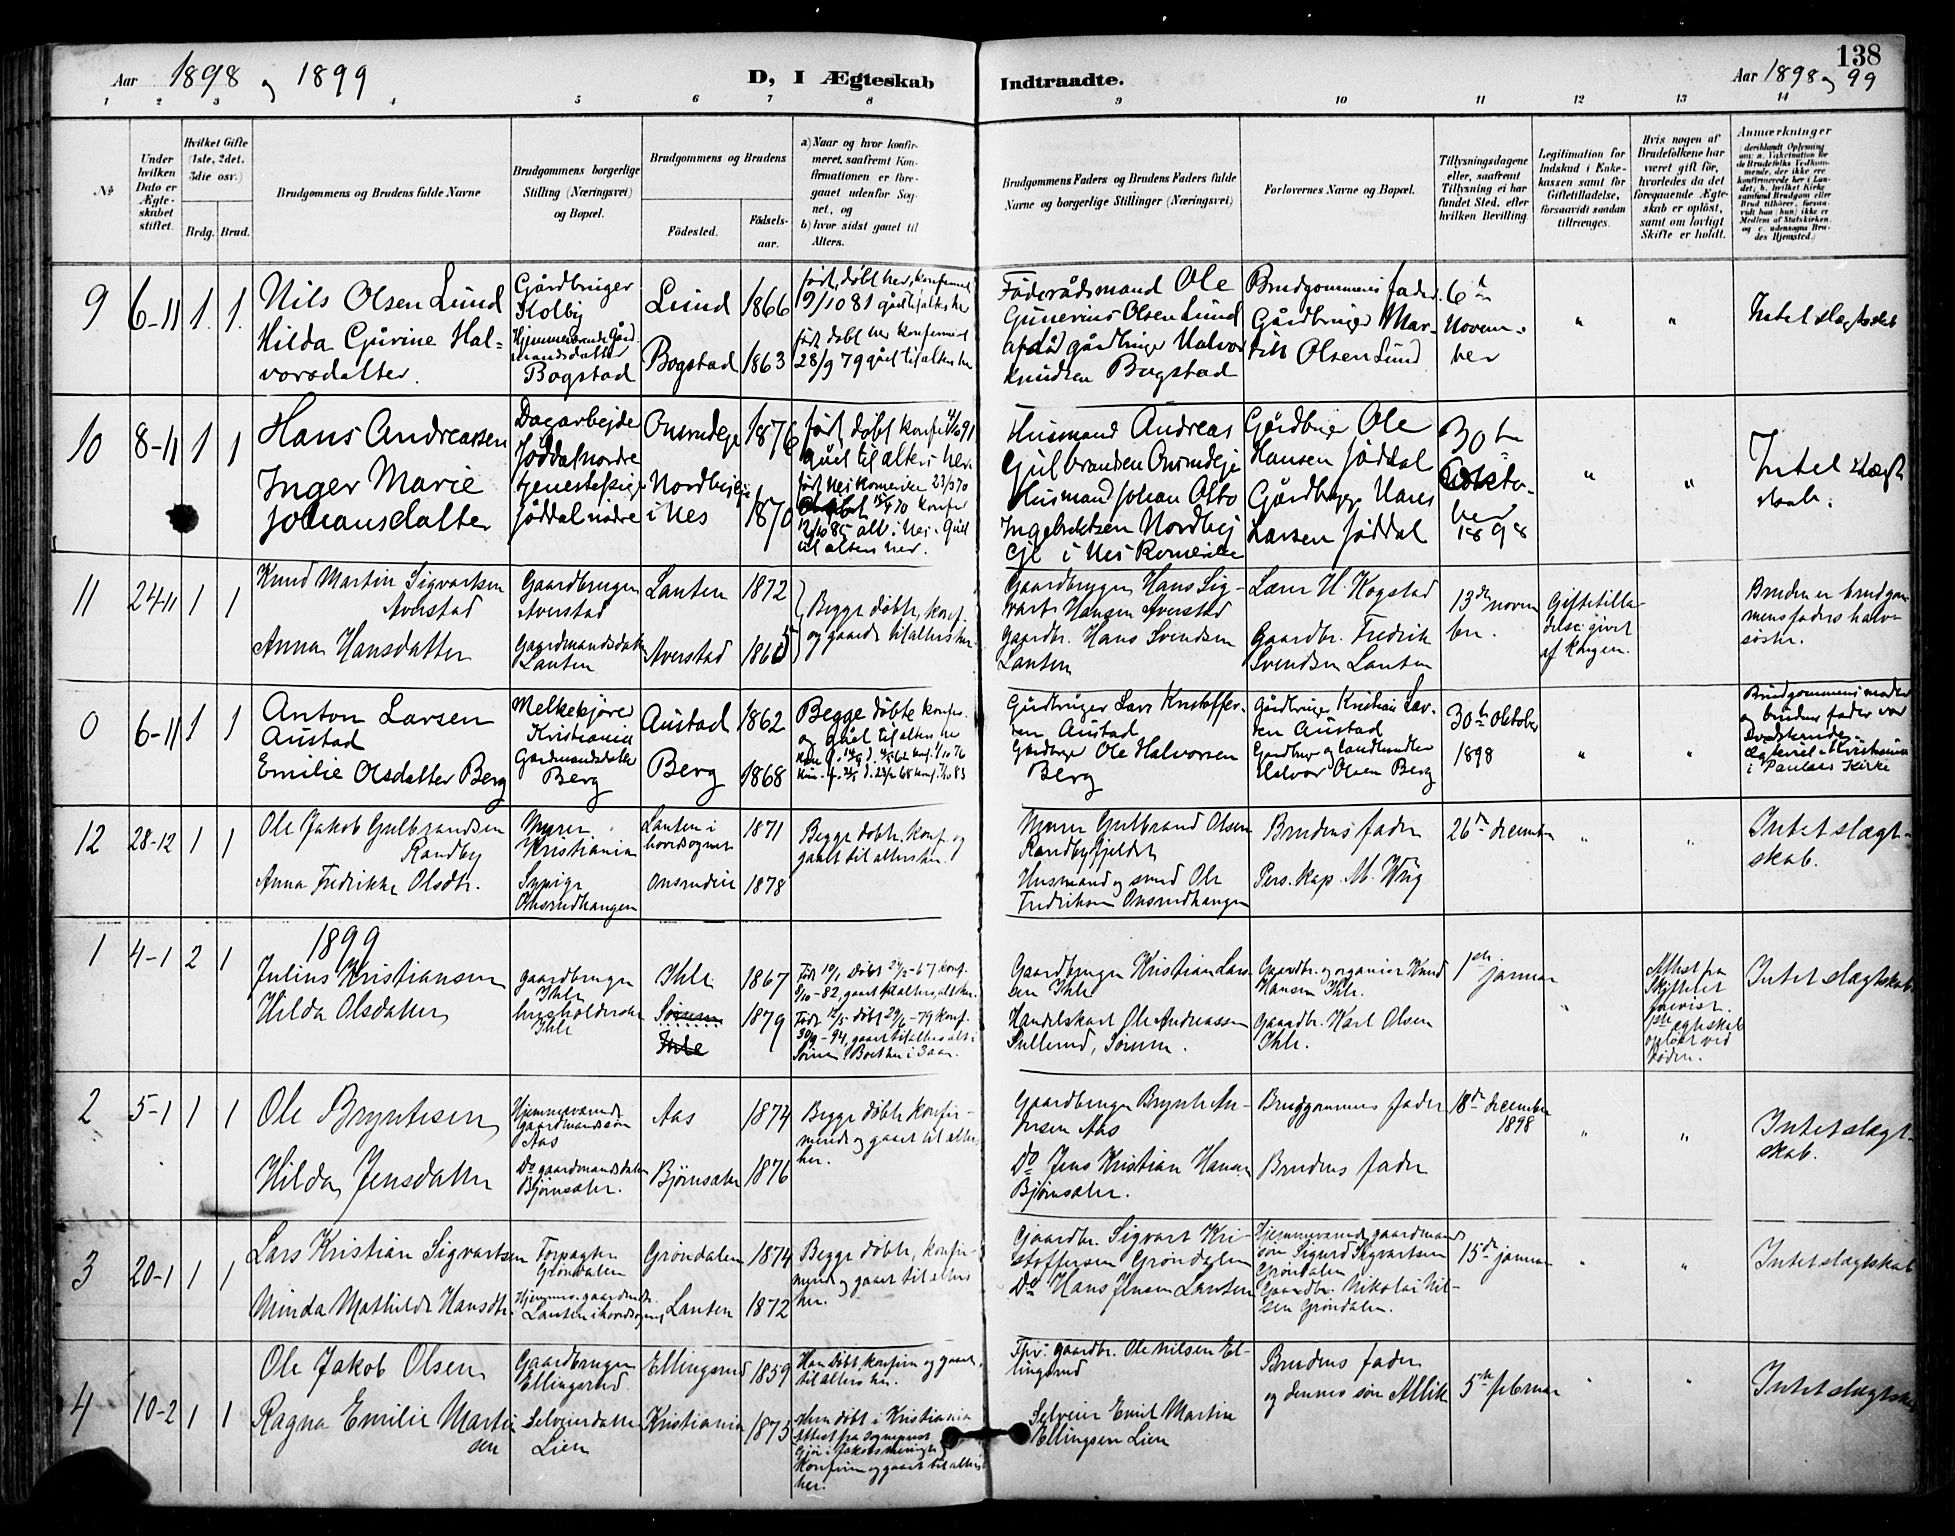 Aar 1898 og 1899
D, I Ægteskab
Indtraadte.
138
Aar 1898 og 99
1 2 3 4 5 6 7 8 9 10 11 12 13 14
№
Under hvilken Dato er Ægteskabet stiftet.
Hvilket Gifte (1ste, 2det, 3die osv.)
Brdg. Brud.
Brudgommens og Brudens fulde Navne
Brudgommens borgerlige Stilling (Næringsvei) og Bopæl.
Brudgommens og Brudens
Fødested.
Fødselsaar.
a) Naar og hvor konfirmeret, saafremt Konfirmationen er foregaaet udenfor Sognet, og
b) hvor sidst gaaet til Alters.
Brudgommens Faders og Brudens Faders fulde Navne og borgerlige Stillinger (Næringsvei)
Forlovernes Navne og Bopæl.
Tillysningsdagene eller, saafremt Tillysning ei har fundet Sted, efter hvilken Bevilling.
Legitimation for Indskud i Enkekassen samt for Giftetilladelse, forsaavidt saadan tiltrænges.
Hvis nogen af Brudefolkene har været gift før, hvorledes da det foregaaende Ægteskab er opløst, samt om lovligt Skifte er holdt.
Anmærkninger
9 6-11 1. 1.
Nils Olsen Lund
Hilda Gurine Halvorsdatter.
Gårdbruger
Kolby
Hjemmeværende Gårdmandsdatter
Bogstad
Lund 1866
Bogstad 1863
født, døbt her, konfirmeret
9/10 81 gået til alters her
født døbt her konfirmeret
28/9 79 gået til alters her
Føderådsmand Ole
Gunerius Olsen Lund
afdød gårdbruger Halvor
Knudsen Bogstad
Brudgommens fader
Gårdbruger Martin Olsen Lund
6te November
" "
Intet slægtskab
10 8-11 1 1
Hans Andreassen
Inger Marie
Johansdatter
Dagarbejder
Jøddal nordre
tjenestepige
Jøddal nordre
Onsrudeje 1876
Nordbyeje
i Nes 1870
Husmand Andreas
Gulbrandsen Onsrudeje
Husmand Johan Otto
Ingebretsen Nordbyeje i Nes Romerike
Gårdbruger Ole
Hansen Jøddal
Gårdbruger Hans
Larsen Jøddal
30te
Oktober
1898
" "
Intet slægtskab.
11 24-11 1 1
Knud Martin Sigvartsen
Averstad
Anna Hansdatter
Gaardbruger
Averstad
Gaardmandsdatter
Lauten
Lauten 1872
Averstad 1865
Begge døbte, konf.
og gaaede til alters her.
Gaardbruger Hans Sigvart Hansen Averstad
Gaardbr. Hans Svendsen
Lauten
Lars H. Kogstad
Gaardbr. Fredrik
Svendsen Lauten
13de november.
Giftetilladelse givet
af Kongen.
Bruden er brudgommens faders halvsøster.
0 6-11 1 1
Anton Larsen
Austad
Emilie Olsdatter Berg
Melkekjører
Kristiania
Gårdmandsdatter
Berg
Austad 1862
Berg 1868
Begge døbte konfir.
og gået til alters her
Gårdbruger Lars Kristoffersen Austad
Gårdbruger Ole Halvorsen
Berg
Gårdbruger Kristian Larsen Austad
Gårdbruger og landhandler
Halvor Olsen Berg
30te oktober
1898
" "
Brudgommens moder
og brudens fader var
Sødskende.
Ægteviet i Kristiania
i Paulus Kirke
12 28-12 1 1
Ole Jakob Gulbrandsen
Randby
Anna Fredrikke Olsdtr.
Murer
Kristiania
Sypige
Onsrudhaugen
Lauten i
hovedsognet 1871
Onsrudeie 1878
Begge døbte, konf. og
gaaet til alters her.
Murer Gulbrand Olsen
Randbyfjeldet
Husmand og smed Ole
Fredriksen Onsrudhaugen
Brudens fader
Pers. kap. M. Wiig
26de december
" "
Intet slægtskab.
1899
1 4-1 2 1
Julius Kristiansen
Hilda Olsdatter
Gaardbruger
Ihle
husholderske
Ihle
Ihle 1867
Sørum 1879
Ihle
Født 19/1 Døbt 24/2-67 konf.
8/10-82, gaaet til alters, alt her.
Gaardbruger Kristian Larsen Ihle
Handelskart Ole Andreassen
Sullerud, Sørum.
Gaardbr. og organist Knud
Hansen Ihle.
Gaardbr. Karl Olsen
Ihle.
1ste januar
"
Attest fra
Skifteret
forevist.
1ste ægteskab
opløst ved
døden.
Intet slægtskab.
2 5-1 1 1
Ole Bryntesen
Hilda Jensdatter
Hjemmeværende
gaardmandssøn
Aas
Do gaardmandsdatter
Bjørnsæter.
Aas 1874
Bjørnsæter 1876
Begge døbte konfirmerede og gaaet til alters
her.
Gaardbruger Brynte Andersen Aas
Do Jens Kristian Hansen
Bjørnsæter.
Brudgommens fader
Brudens fader
18de december
1898
" "
Intet slægtskab.
3 20-1 1 1
Lars Kristian Sigvartsen
Minda Mathilde Hansdtr.
Forpagter
Grøndalen
Hjemmev. gaardmdr.
Lauten i hovedsognet
Grøndalen 1874
Lauten 1872
Begge døbte, konfirmerede og gaaet til alters
her.
Gaardbr. Sigvart Kristoffersen Grøndalen
Do Hans Jensen Lauten
Hjemmeværende gaardmandssøn Sigurd Sigvartsen
Grøndalen
Gaardbr. Nikolai Nilsen Grøndalen.
15de januar
" "
Intet slægtskab
4 10-2 1 1
Ole Jakob Olsen
Ragna Emilie Martinsen
Gaardbruger
Ellingsrud.
Selveierdatter
Lien
Ellingsrud 1859
Kristiania 1873
Han døbt, konfirm og gaaet
til alters her.
Hun døbt i Kristiania
Attest fra sognepræst
Konfirm og gaaet til alters
her.
Fhv. gaardbr. Ole Nilsen Ellingsrud
Selveier Emil Martin
Ellingsen Lien
Brudens fader
og dennes søn
5te februar
" "
Intet slægtskab